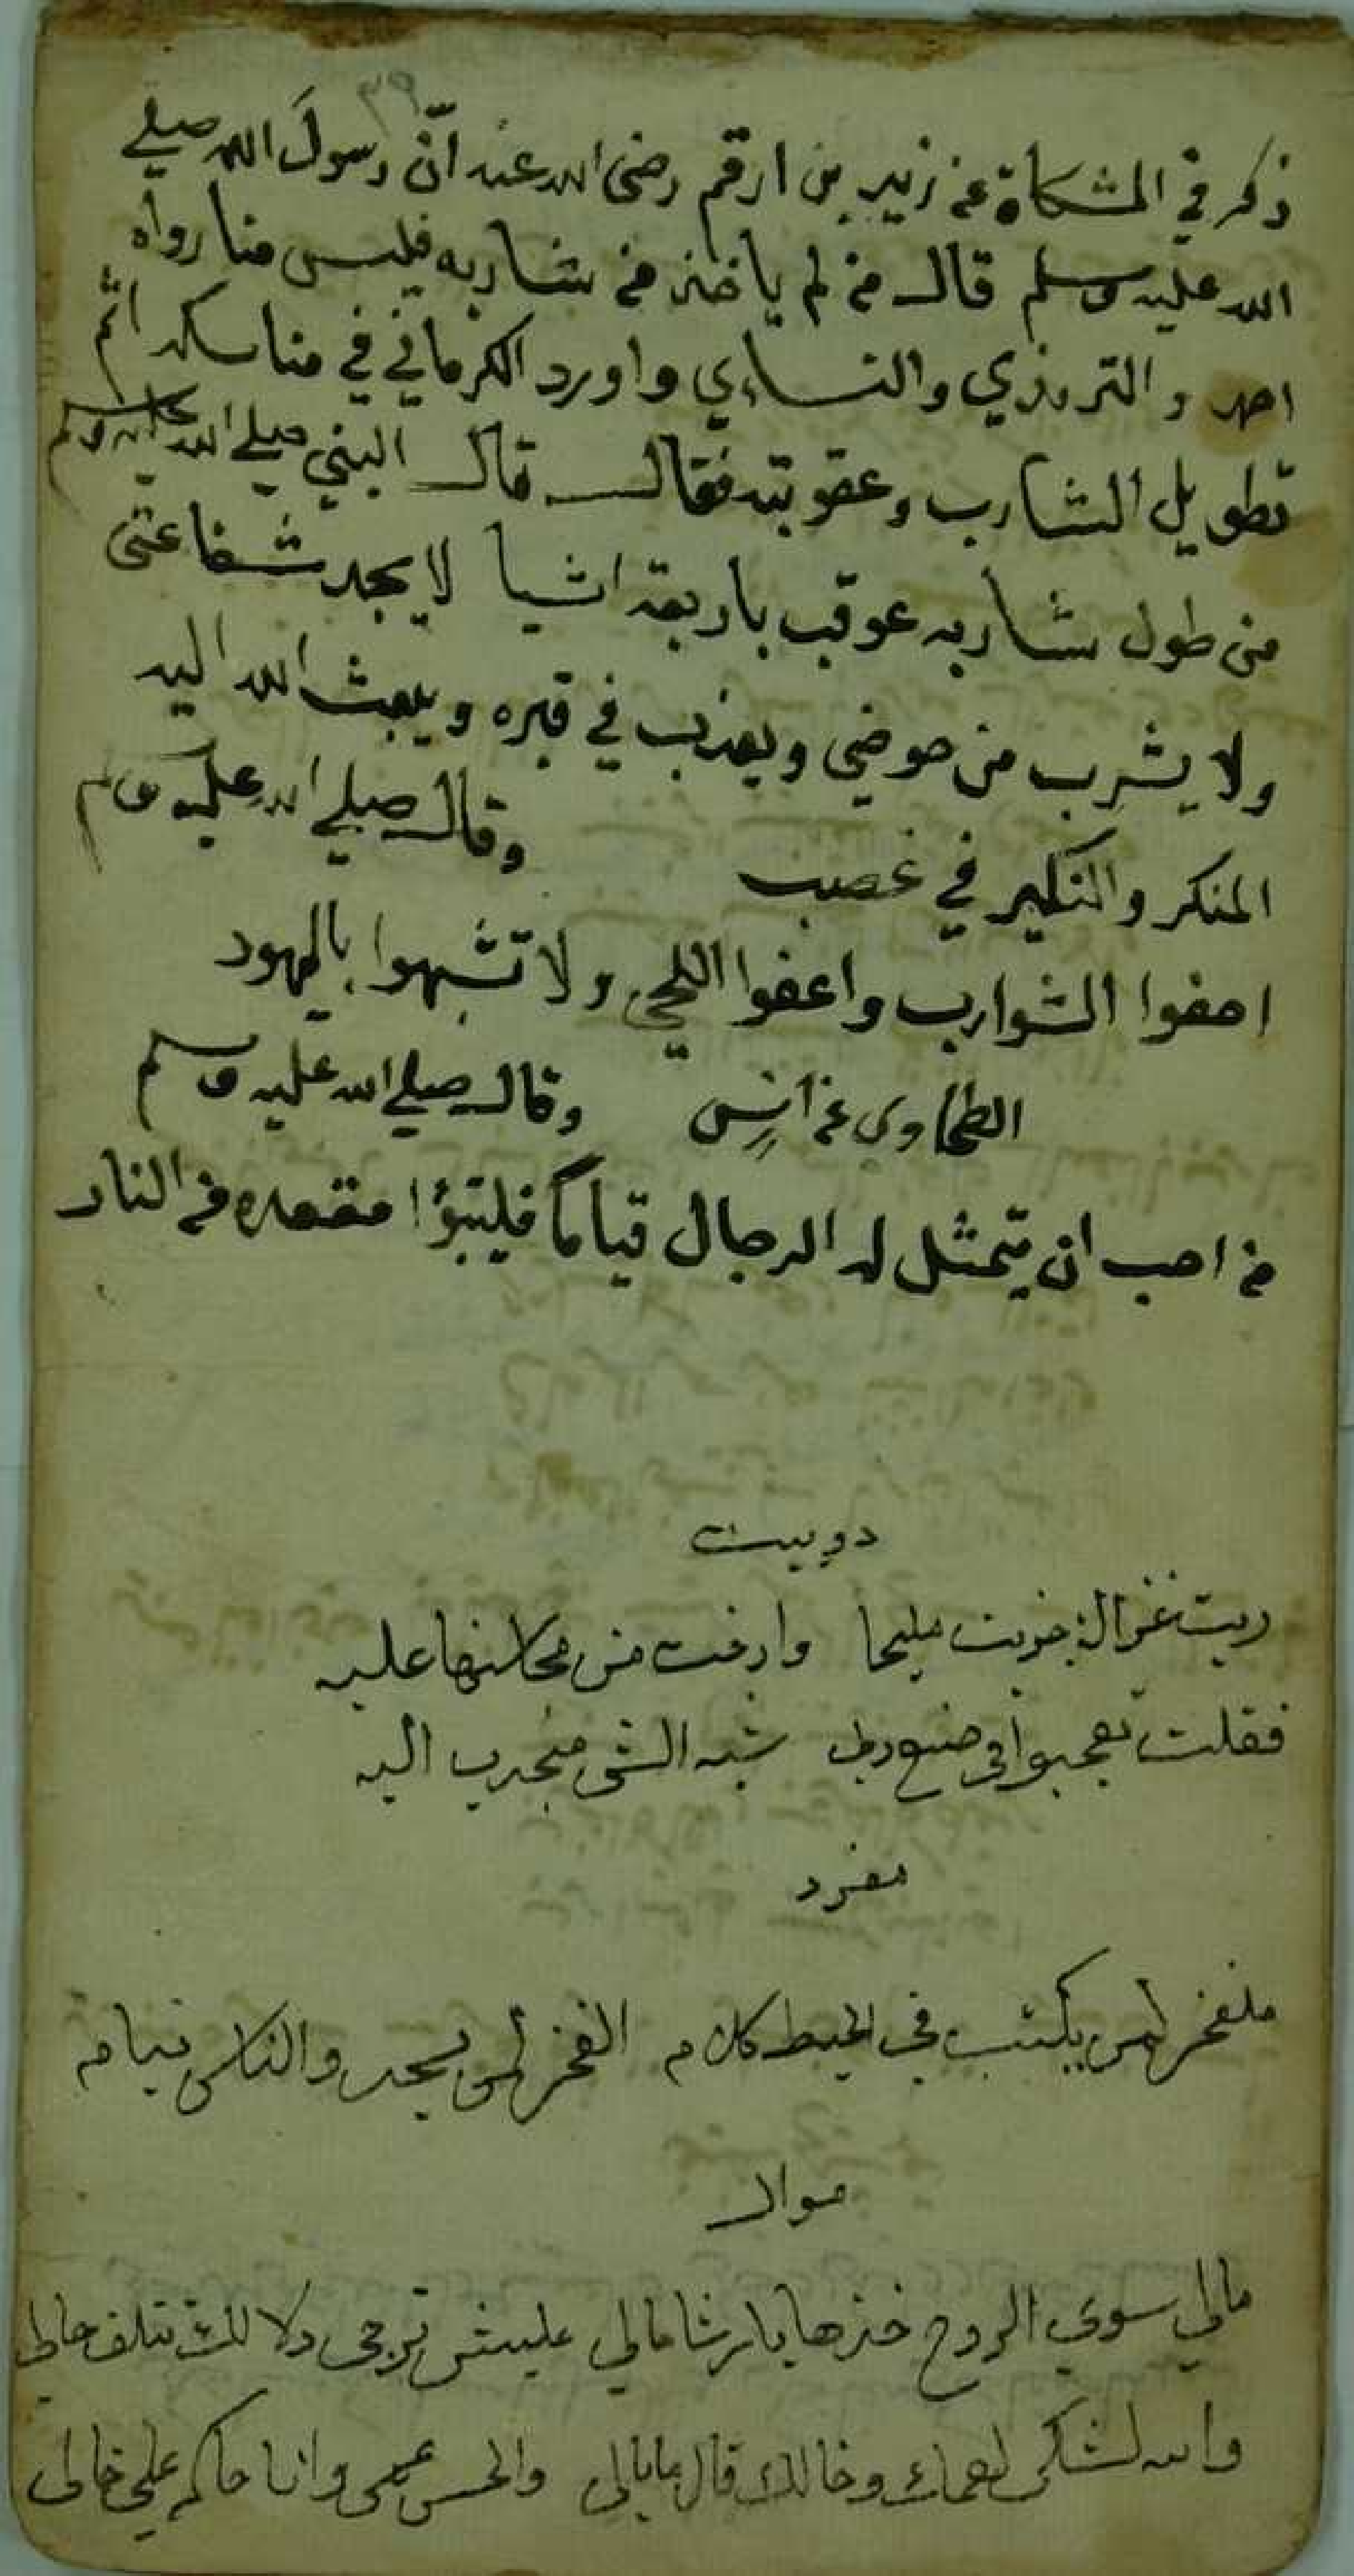 ٣٩
ذكر في المشكاة عن زيد بن ارقم رضى الله عنه انّ رسولَ الله صلي
الله عليه وسلم قال من لم ياخذ من شاربه فليس منا رواه
احمد والترمذي والنساءي واورد الكرماني في مناسكه اثم
تطويل الشارب وعقوبته فقال قال النبي صلي الله عليه وسلم
من طول شاربه عوقب باربعة اشيا لا يجد شفاعتى
ولا يشرب من حوضي ويعذب في قبره ويبعث الله اليه
المنكر والنكير في غضب وقال صلي الله عليه وسلم
احفوا الشوارب واعفوا اللحي ولا تشبهوا باليهود
الطحاوى عن انس وقال صلي الله عليه وسلم
من احب ان يتمثل له الرجال قياماً فليتبؤا مقعده من النار
دوبيت
ريت غزالة جذبت مليحا وارخت من محاسنها عليه
فقلت تعجبوا فى صنع ربى شبه الشى منجدب اليه
مفرد
ملفخر لمن يكتب فى الحيط كلام الفخر لمن يسجد والناس نيام
موال
مالي سوي الروح خذها يا رشا مالي عليش ترجى دلالك تتلف حالي
والله لشكى لعمك وخالك قال ما بالي والحسن عمى وانا حاكم على خالى